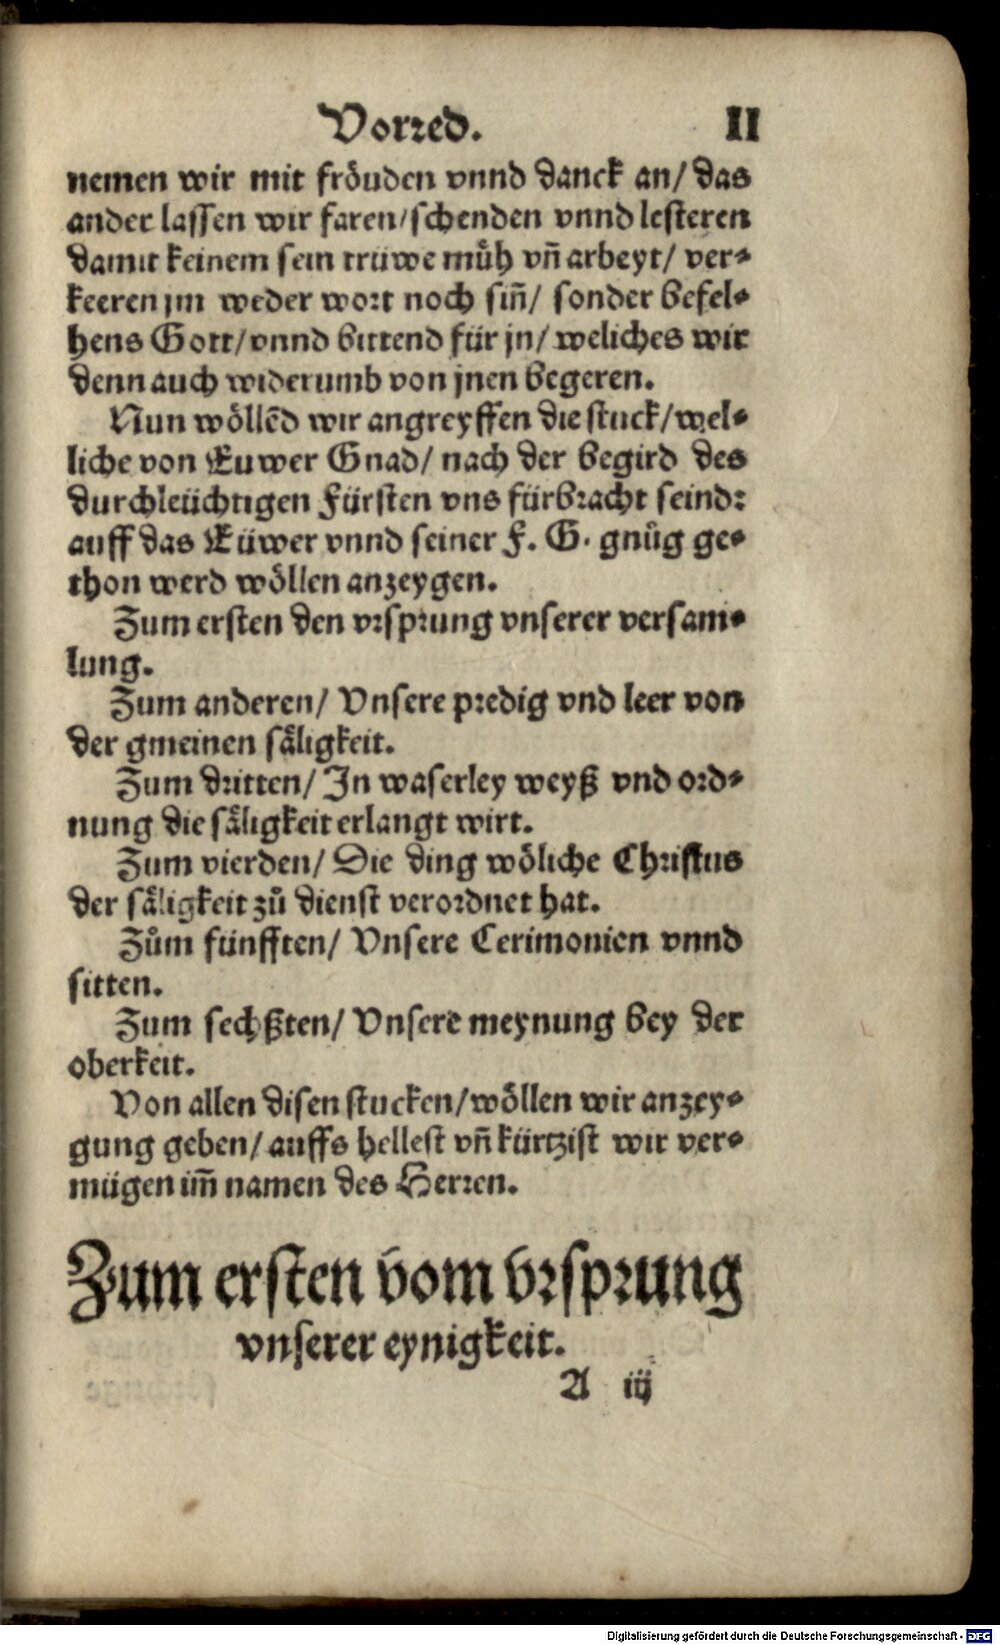 Vorred. II
nemen wir mit fröuden vnnd danck an/ das
ander lassen wir faren/schenden vnnd lesteren
damit keinem sein trüwe muͤh vñ arbeyt/ ver⸗
keeren jm weder wort noch siñ/ sonder befel⸗
hens Gott/vnnd bittend für jn/ weliches wir
denn auch widerumb von jnen begeren.
Nun wöllēd wir angreyffen die stuck/wel⸗
liche von Euwer Gnad/ nach der begird des
durchleüchtigen Fürsten vns fürbracht seind:
auff das Eüwer vnnd seiner F. G. gnuͦg ge⸗
thon werd wöllen anzeygen.
Zum ersten den vrsprung vnserer versam⸗
lung.
Zum anderen/ Vnsere predig vnd leer von
der gmeinen säligkeit.
Zum dritten/ In waserley weyß vnd ord⸗
nung die säligkeit erlangt wirt.
Zum vierden/ Die ding wöliche Christus
der säligkeit zuͦ dienst verordnet hat.
Zuͦm fünfften/ Vnsere Cerimonien vnnd
sitten.
Zum sechßten/ Vnsere meynung bey der
oberkeit.
Von allen disen stucken/wöllen wir anzey⸗
gung geben/ auffs hellest vñ kürtzist wir ver⸗
mügen im̃ namen des Herren.
Zum ersten vom vrsprung
vnserer eynigkeit.
A iij
Digitalisierung gefördert durch die Deutsche Forschungsgemeinschaft - DFG